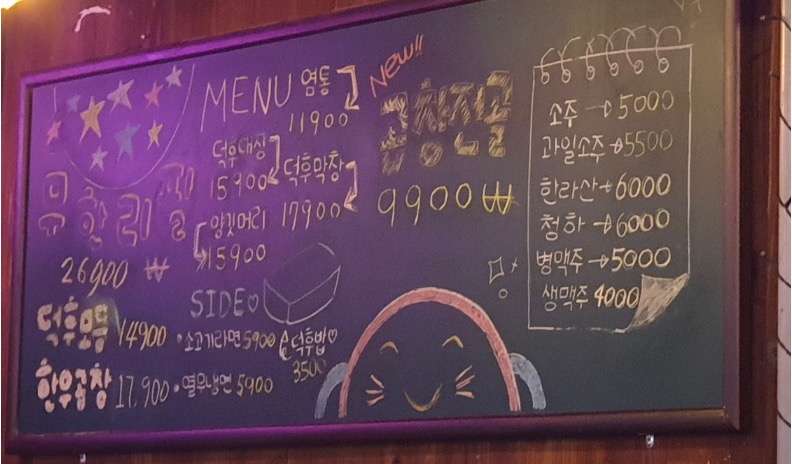 MENU
염통
11900
덕후대창
15900
덕후막창
17900
양깃머리
15900
26900 ₩
덕후모듬 14900
한우곱창 17,900
SIDE♡
• 소고기라면 5900
• 열무냉면 5900
덕후밥♡
3500
New!!
곱창전골
9900₩
소주 → 5000
과일소주 → 5500
한라산 → 6000
청하 → 6000
병맥주 → 5000
생맥주 4000